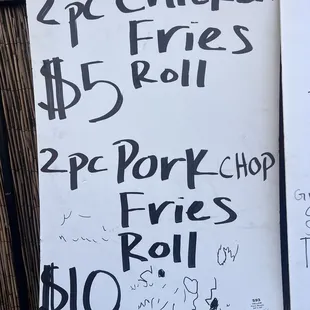 2pc Chicken
Fries
$5 Roll
2pc Pork CHOP
Fries
Roll
$10